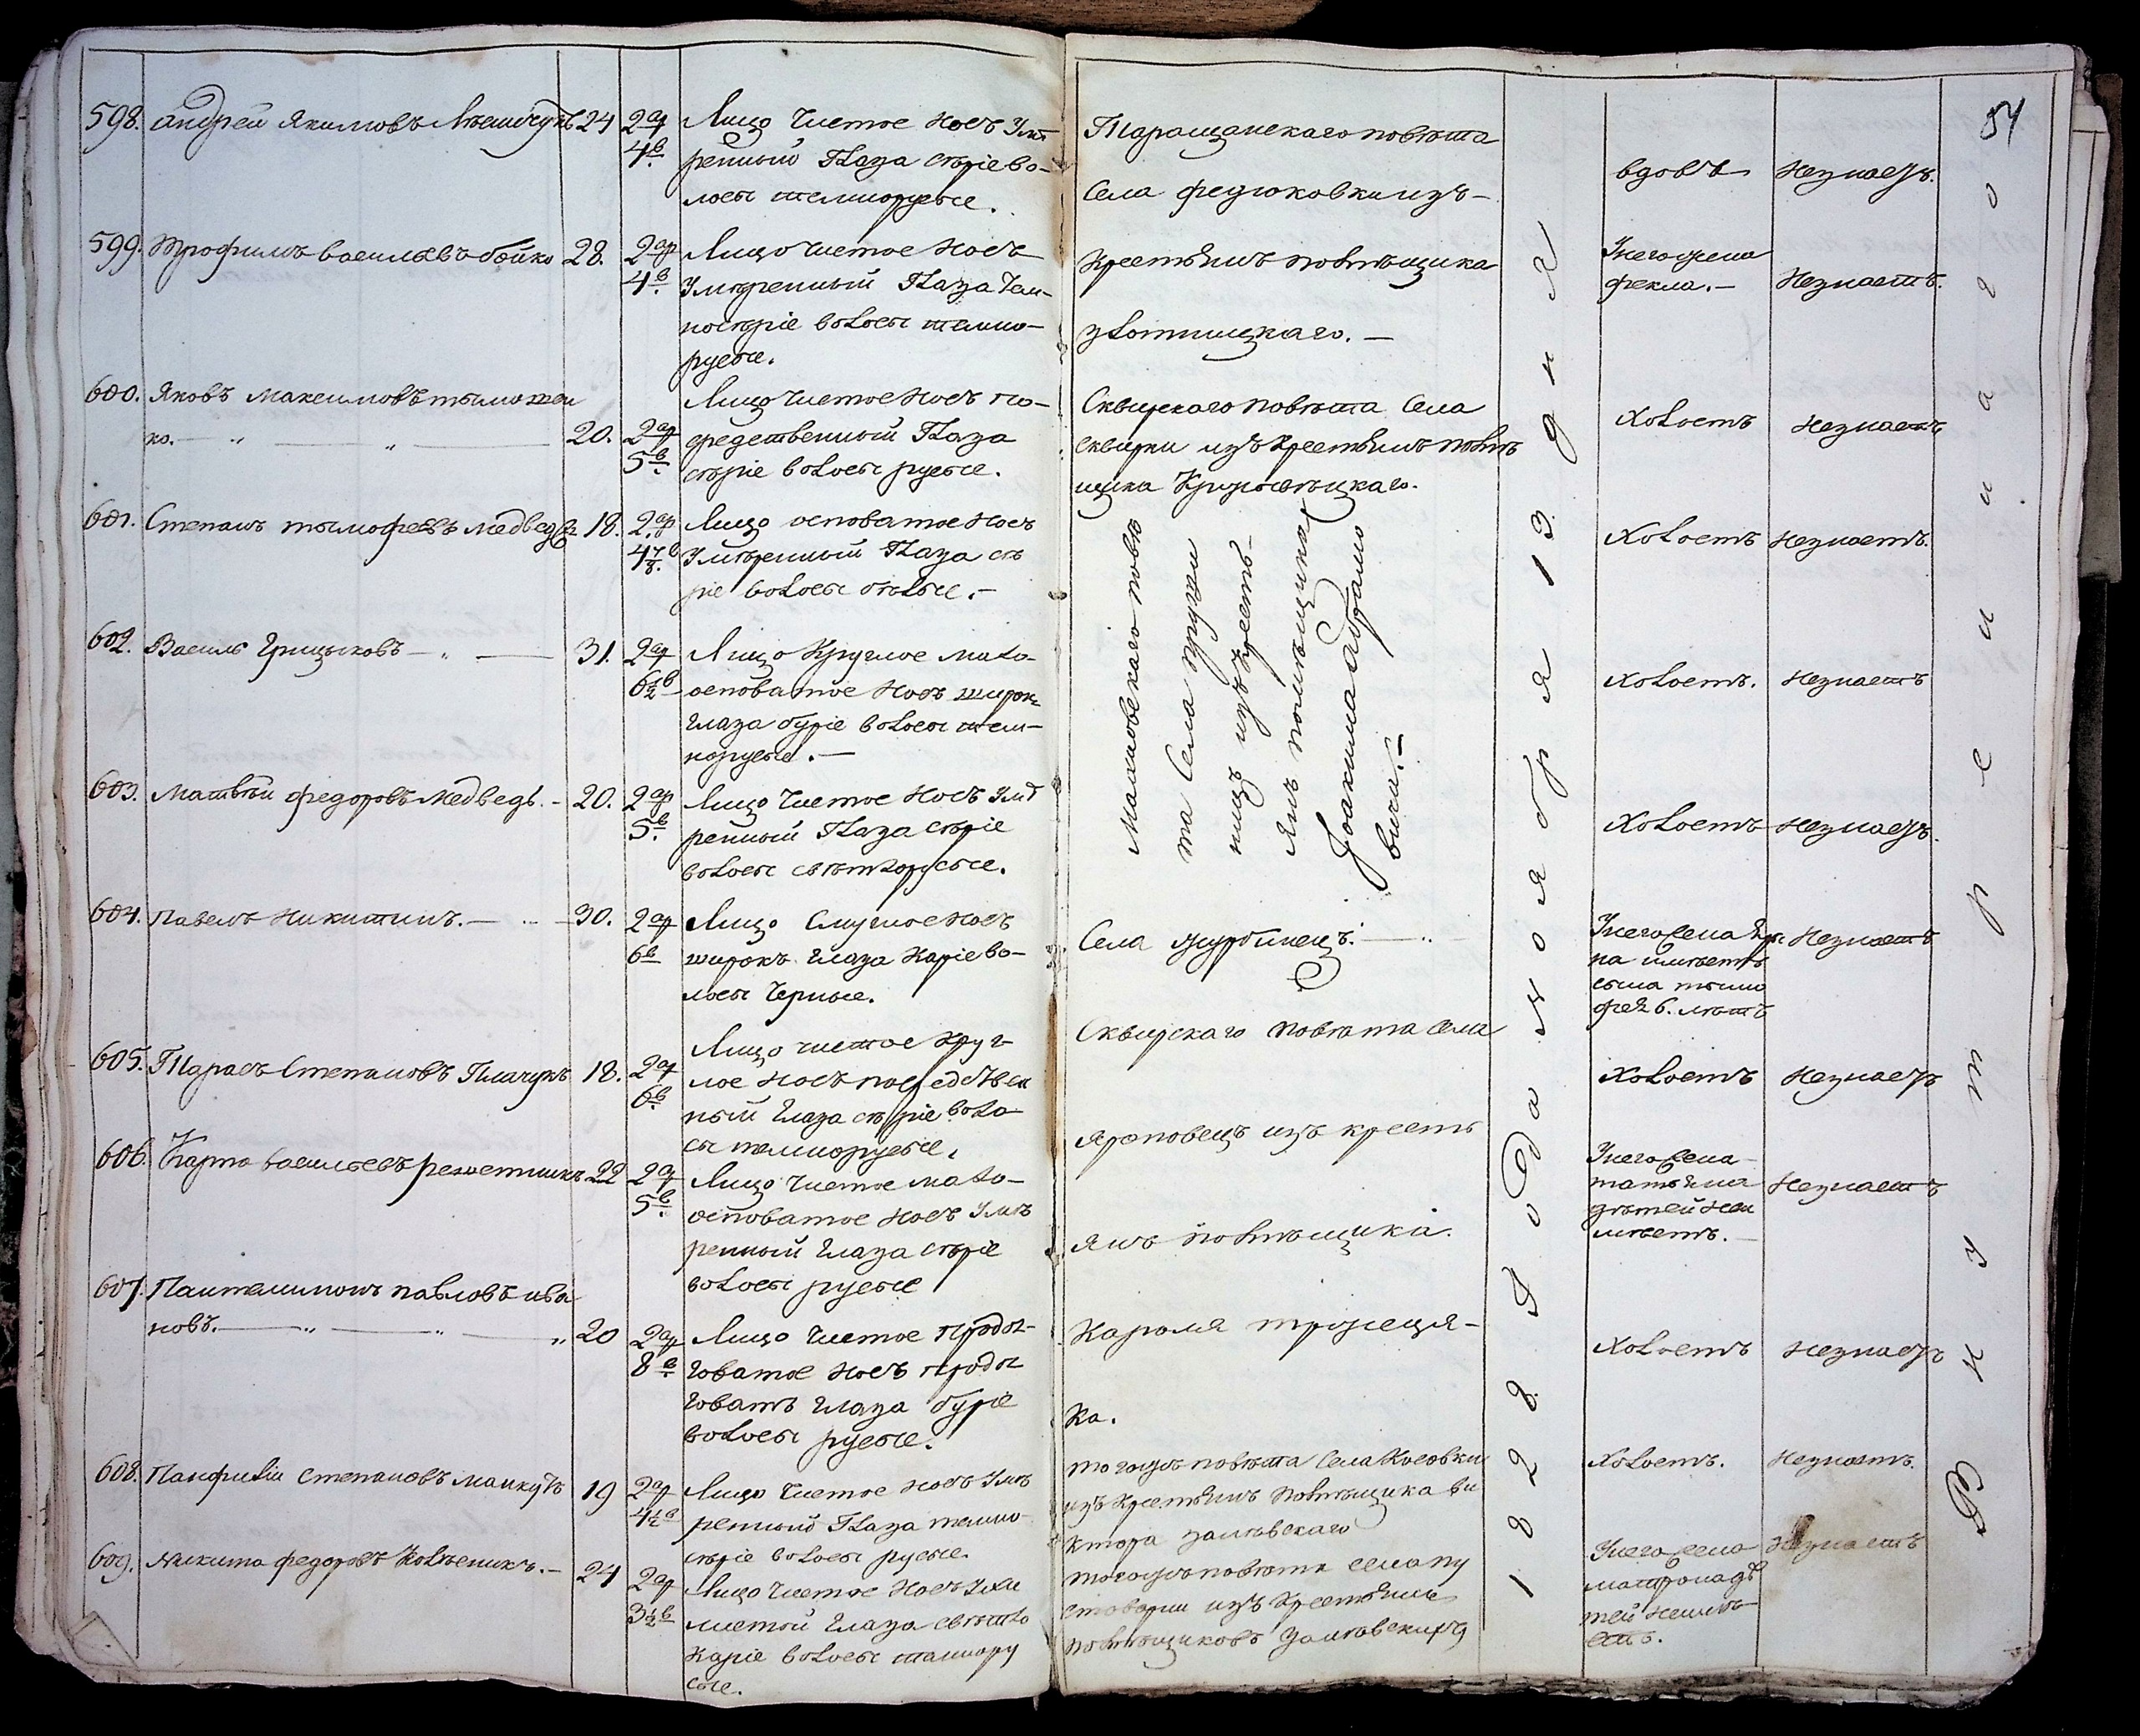 54
598. Андрей Якимовъ 24 2 ар 4 в. Лицо чистое носъ умѣ
ренный глаза сѣріе во-
лосы темнорусые.
Таращанскаго повѣта
Села Федюковки изъ-
вдовъ незнаетъ.
599. Трофимъ Васильевъ Бойко 28. 2 ар 4 в. Лицо чистое носъ
умѣренный глаза тем-
носѣріе волосы темно-
русые.
Крестьянъ помѣщика
Злотницкаго. —
У него жена
Фекла. — Незнаетъ.
600. Яковъ Максимовъ Тимошен
ко. — „ — „ — 20. 2 ар 5 в. Лицо чистое носъ по-
средственный глаза
сѣріе волосы русые.
Сквирскаго повѣта Села
Сквирки изъ крестьянъ помѣ
щика
Холостъ Незнаетъ
601. Степанъ Тимофеевъ Медведь 18. 2 ар 4 7/8 в. Лицо осповатое носъ
умѣренный глаза сѣ
ріе волосы бѣлые. —
Холостъ Незнаетъ.
Махновскаго повѣ
та Села
ницъ изъ кресть-
янъ помѣщика
Іоакима Абрамо
вича. —
602. Василь Грицьковъ — „ — 31. 2 ар 6 1/2 в Лицо круглое мало-
осповатое носъ широк.
глаза буріе волосы тем-
норусые. —
Холостъ. Незнаетъ
603. Матвѣй Федоровъ Медведь. - 20. 2 ар 5 в. Лицо чистое носъ умѣ
ренный глаза сѣріе
волосы свѣтлорусые.
Холостъ Незнаетъ.
604. Павелъ Никитинъ. — 30. 2 ар 6 в Лицо смуглое носъ
широкъ глаза каріе во-
лосы черные.
Села Журбинецъ. — „
У него жена
на имѣетъ
сына Тимо
фея 6. лѣтъ
Незнаетъ
605. Тарасъ Степановъ 18. 2 ар 6 в. Лицо чистое круг
лое носъ посредствен
ный глаза сѣріе воло
сы темнорусые.
Сквирскаго повѣта Села
Яроповецъ изъ кресть
Холостъ Незнаетъ
606. Карпо Васильевъ Решетникъ 22 2 ар 5 в. Лицо чистое мало-
осповатое носъ умѣ
ренный глаза сѣріе
волосы русые
янъ помѣщика
У него жена
Татьяна
дѣтей неи
мѣетъ. —
Незнаетъ
607. Пантелимонъ Павловъ Ива
новъ. — „ — „ — „ 20 2 ар 8 в Лицо чистое продол-
говатое носъ продол
говатъ глаза буріе
волосы русые.
Кароля
ка.
Холостъ Незнаетъ
608. Панфилій Степановъ 19 2 ар 4 1/2 в Лицо чистое носъ умѣ
ренный глаза темно-
сѣріе волосы русые.
тогожъ повѣта Села Косовки
изъ крестьянъ помѣщика Ви
ктора Залѣвскаго
Холостъ. Незнаетъ.
609. Никита Федоровъ — 24 2 ар 3 1/2 в Лицо чистое носъ
глаза свѣтло
каріе волосы темнору
сые.
тогожъ повѣта села Пу
стоварни изъ крестьянъ
помѣщиковъ Залѣвскихъ
У него жена
Матрона дѣ
тей неимѣ
етъ.
Незнаетъ
1828 Года ноября 13 дня